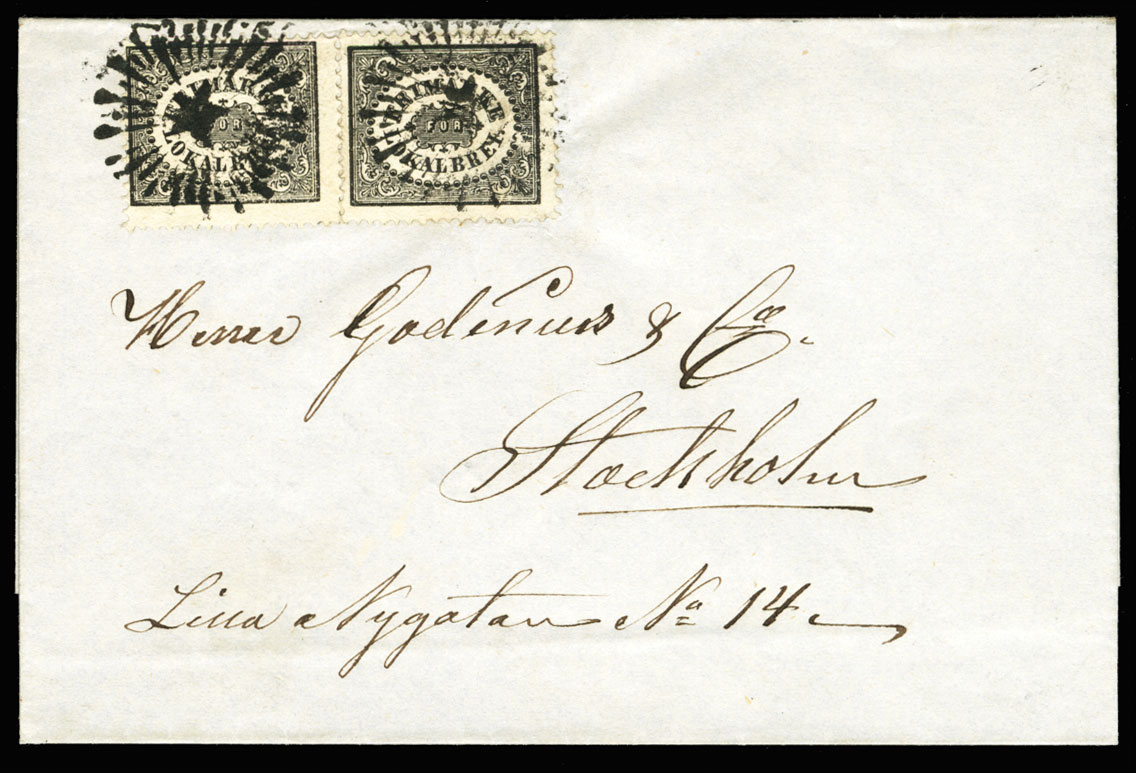 FRIMÄRKE
FÖR
LOKALBREF
FRIMÄRKE
FÖR
LOKALBREF
Herrar Godenius & Co.
Stockholm
Lilla Nygatan No 14